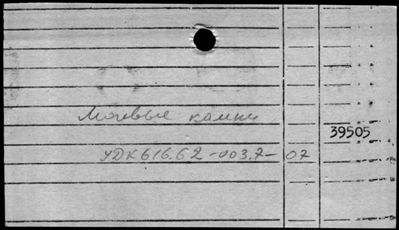 Мочевые камни
39505
УДК 616.62-003.7-07